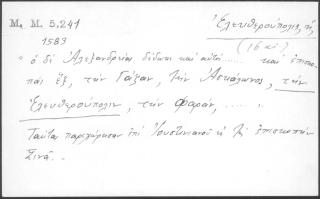 M. M. 5.241
Ἐλευθερούπολις, ἡ,
1583
(16 αἰ.)
"ὁ δὲ Ἀλεξανδρείας δίδωσι καὶ αὐτὸς ...... καὶ ἐπισκο-
πὰς ἕξ, τὴν Γάζαν, τὴν Ἀσκάλωνος, τὴν
Ἐλευθερούπολιν, τὴν Φαράν, ......
Ταύτας παρεχώρησαν ἐπὶ Ἰουστινιανοῦ ἐπισκοπὴν
Σινᾶ.